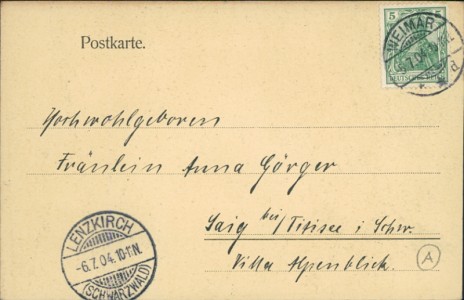 Postkarte.
5
WEIMAR
7.04.
DEUTSCHES REICH
Hochwohlgeboren
Fräulein Anna Görger
Saig bei/Titisee i Schw.
Villa Alpenblick.
LENZKIRCH
-6.7.04.10-11N.
(SCHWARZWALD)
A